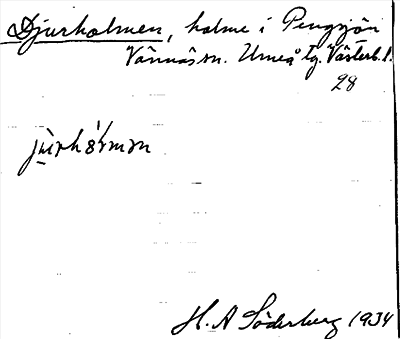 Djurholmen, holme i Pengsjön
Vännäs sn. Umeå tg. Västerb. l.
28
jùrhól'mən
H. A Söderberg 1934